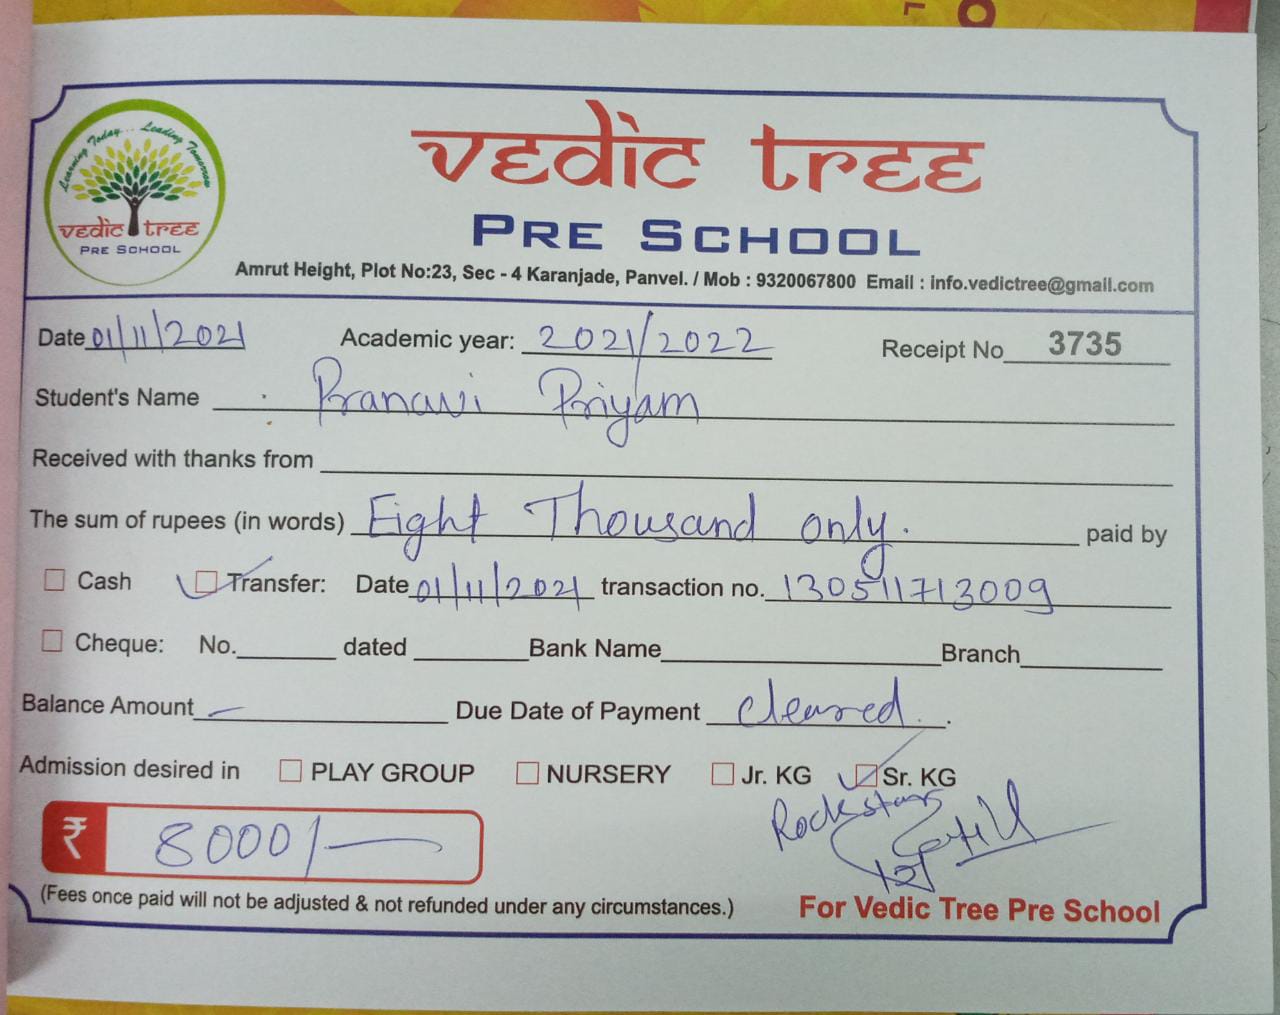 Learning Today... Leading Tomorrow
vedic tree
PRE SCHOOL
vedic tree
PRE SCHOOL
Amrut Height, Plot No:23, Sec - 4 Karanjade, Panvel. / Mob : 9320067800 Email : info.vedictree@gmail.com
Date 01/11/2021 Academic year: 2021/2022 Receipt No 3735
Student's Name Pranavi Priyam
Received with thanks from
The sum of rupees (in words) Eight Thousand only. paid by
Cash Transfer: Date 01/11/2021 transaction no. 130511713009
Cheque: No. dated Bank Name Branch
Balance Amount — Due Date of Payment cleared.
Admission desired in PLAY GROUP NURSERY Jr. KG Sr. KG
Rockstars
₹ 8000/—
(Fees once paid will not be adjusted & not refunded under any circumstances.)
For Vedic Tree Pre School